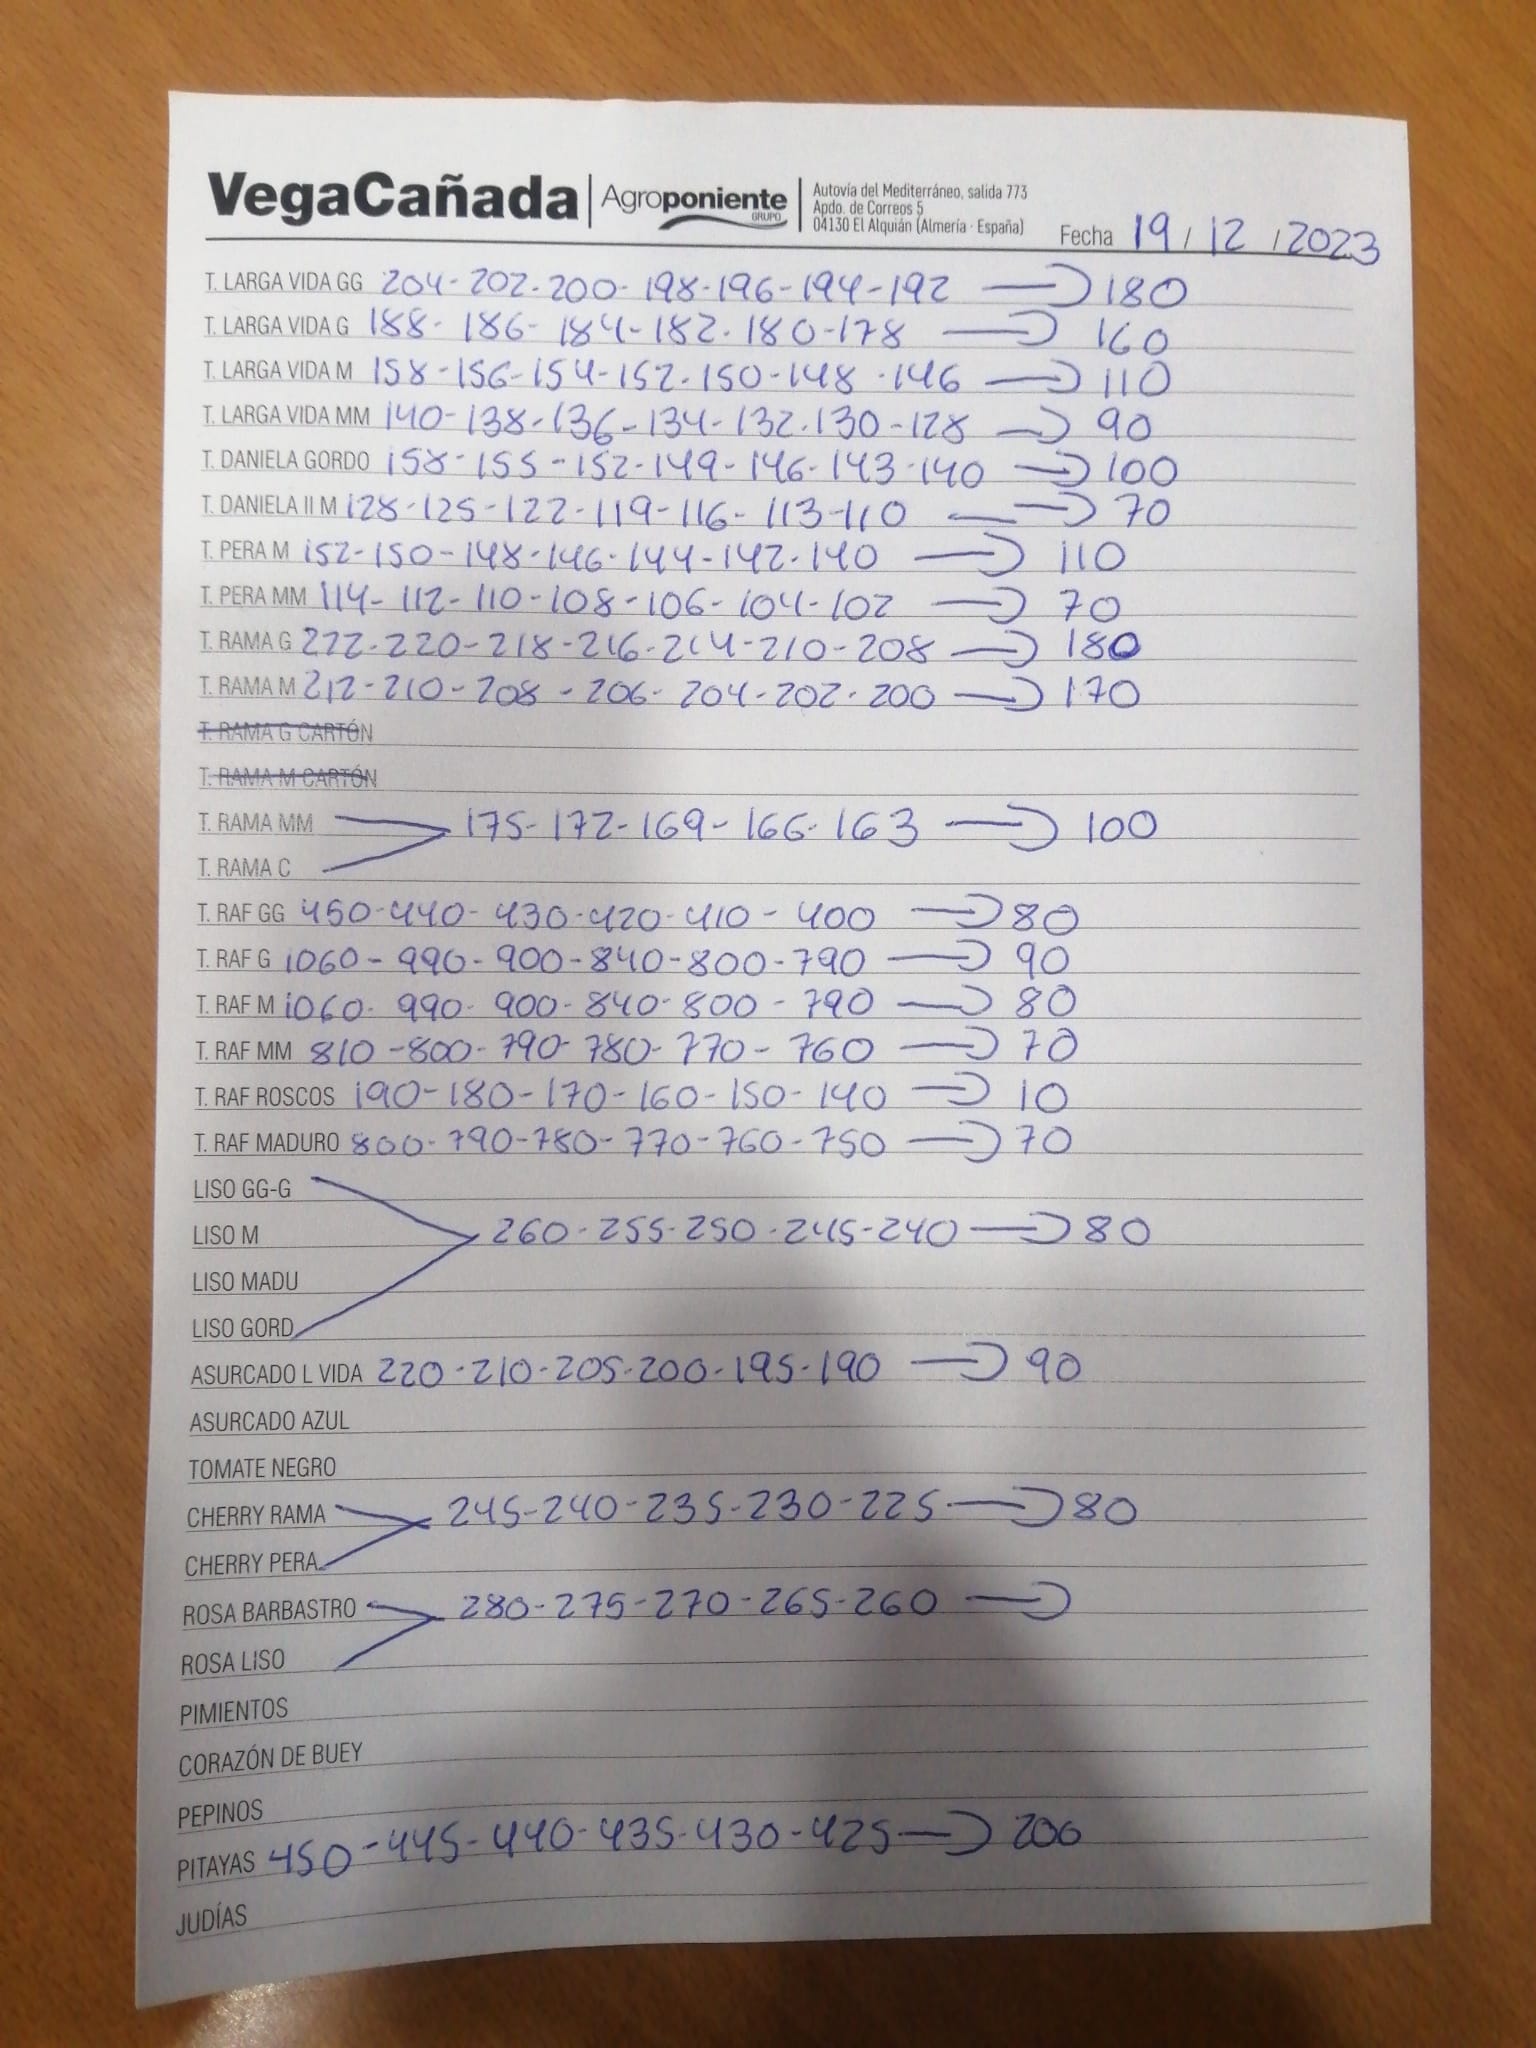 VegaCañada
Agroponiente
GRUPO
Autovía del Mediterráneo, salida 773
Apdo. de Correos 5
04130 El Alquián (Almería · España)
Fecha 19 / 12 / 2023
T. LARGA VIDA GG 204-202-200-198-196-194-192 180
T. LARGA VIDA G 188-186-184-182-180-178 160
T. LARGA VIDA M 158-156-154-152-150-148-146 110
T. LARGA VIDA MM 140-138-136-134-132-130-128 90
T. DANIELA GORDO 158-155-152-149-146-143-140 100
T. DANIELA II M 128-125-122-119-116-113-110 70
T. PERA M 152-150-148-146-144-142-140 110
T. PERA MM 114-112-110-108-106-104-102 70
T. RAMA G 222-220-218-216-214-210-208 180
T. RAMA M 212-210-208-206-204-202-200 170
T. RAMA G CARTÓN
T. RAMA M CARTÓN
T. RAMA MM 175-172-169-166-163 100
T. RAMA C
T. RAF GG 450-440-430-420-410-400 80
T. RAF G 1060-990-900-840-800-790 90
T. RAF M 1060-990-900-840-800-790 80
T. RAF MM 810-800-790-780-770-760 70
T. RAF ROSCOS 190-180-170-160-150-140 10
T. RAF MADURO 800-790-780-770-760-750 70
LISO GG-G
LISO M 260-255-250-245-240 80
LISO MADU
LISO GORD
ASURCADO L VIDA 220-210-205-200-195-190 90
ASURCADO AZUL
TOMATE NEGRO
CHERRY RAMA 245-240-235-230-225 80
CHERRY PERA
ROSA BARBASTRO 280-275-270-265-260
ROSA LISO
PIMIENTOS
CORAZÓN DE BUEY
PEPINOS
PITAYAS 450-445-440-435-430-425 200
JUDÍAS